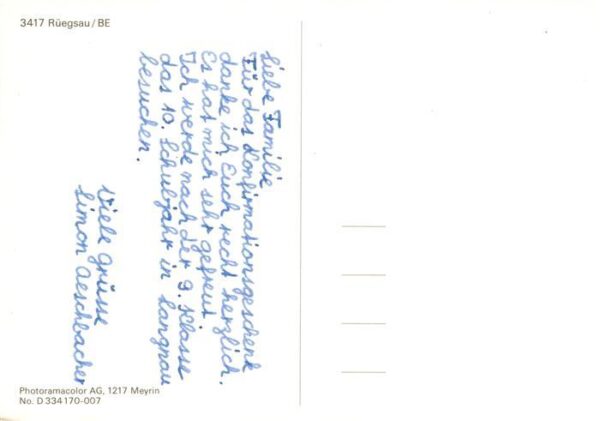 3417 Rüegsau/BE
Liebe Familie
Für das Konfirmationsgeschenk
danke ich Euch recht herzlich.
Es hat mich sehr gefreut.
Ich werde nach der 9. Klasse
das 10. Schuljahr in Langnau
besuchen.
Viele Grüsse
Simon Aeschbacher
Photoramacolor AG, 1217 Meyrin
No. D 334 170-007